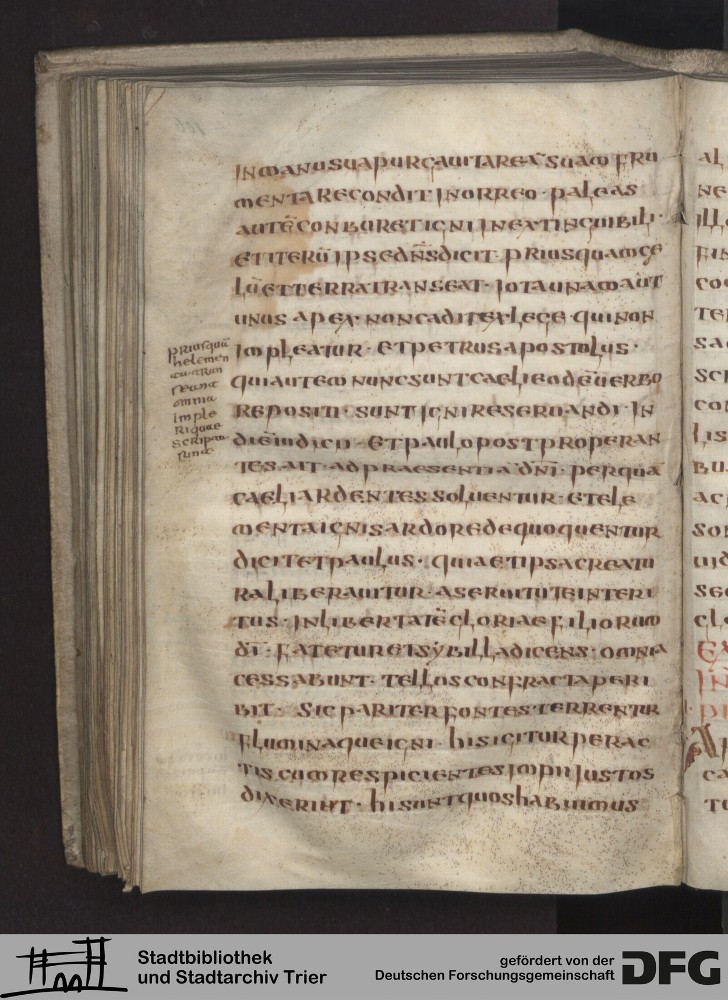 106
INMANUSUAPURGAUITAREĀSUAM FRU
MENTARECONDIT INORREO · PALEAS
AUTĒCONBURETIGNI INEXTINGUIBILI ·
ETITERŪIPSEDN̄SDICIT · PRIUSQUAMCE
LŪETTERRATRANSEAT · IOTAUNAMAUT
UNUS APEX · NONCADITEXLEGE · QUINON
IMPLEATUR · ETPETRUSAPOSTOLUS ·
QUIAUTEM NUNCSUNTCAELIEODĒUERBO
REPOSITI · SUNT IGNIRESERUANDI · IN
DIĒIUDICII · ETPAULOPOSTPROPERAN
TES · AIT · ADPRAESENTIĀ DN̄I · PERQUĀ
CAELIARDENTESSOLUENTUR · ETELE
MENTAIGNISARDOREDEQUOQUENTUR
DICITETPAULUS · QUIAETIPSACREATU
RALIBERAUITUR · ASERUITUTEINTERI
TUS · INLIBERTATĒGLORIAEFILIORUM
DĪ · FATETURETSYBILLADICENS · OMNIA
CESSABUNT · TELLUSCONFRACTAPERI
BIT · SICPARITERFONTESTERRENTUR
FLUMINAQUEIGNI · HISIGITURPERAC
TIS CUMRESPICIENTESIMPII IUSTOS
DIXERINT · HISUNTQUOSHABUIMUS
priusquā
helemen
omnia
imple
riquae
scripta
sunt
AL
NE
ILL
FIN
CO
TE
SA
SCI
CO
LIS
BU
AC
SO
UID
SEC
CL
EX
IN
CA
TU
Stadtbibliothek
und Stadtarchiv Trier
gefördert von der
Deutschen Forschungsgemeinschaft
DFG